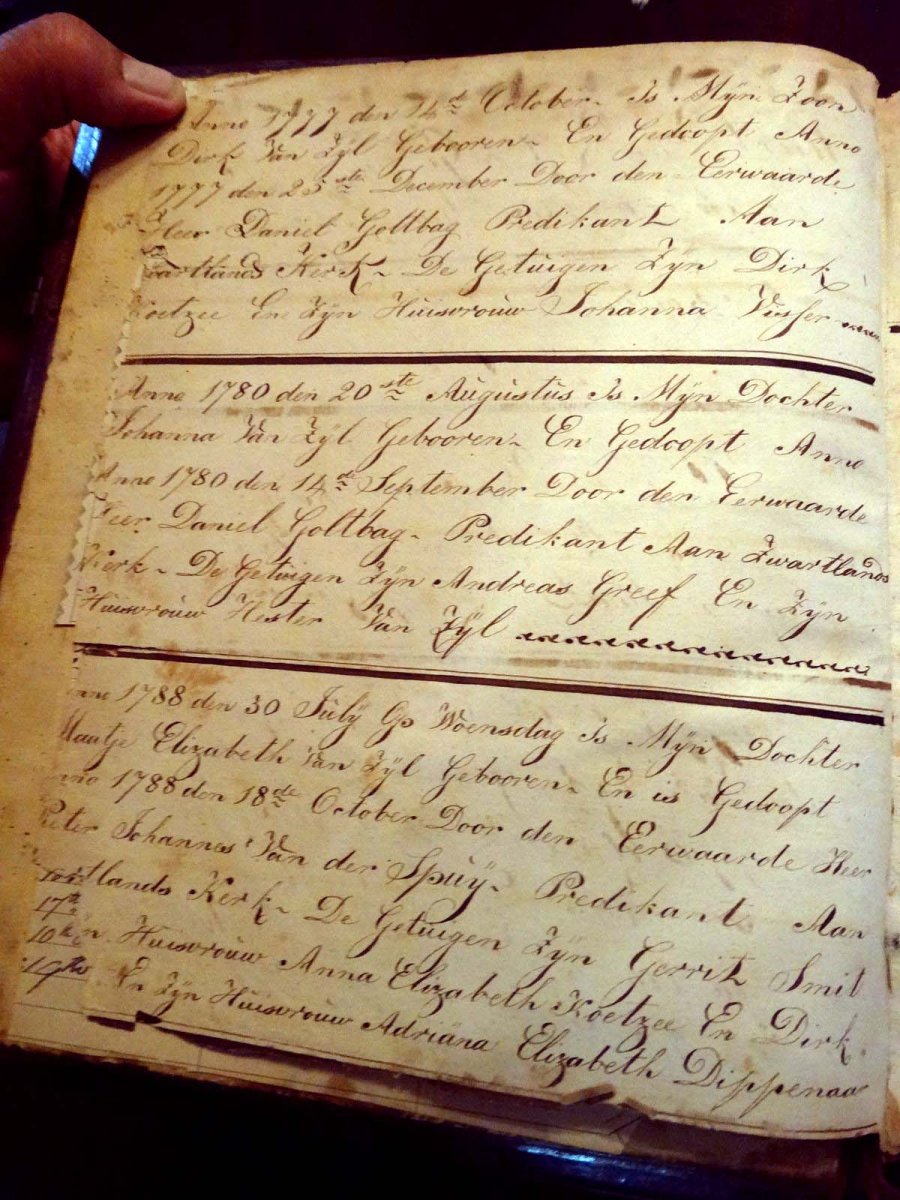 Anno 1777 den 14de October Is Mÿn Zoon
Dirk Van Zÿl Gebooren En Gedoopt Anno
1777 den 25ste December Door den Eerwaarde
Heer Daniel Goltbag Predikant Aan
wartlands Kerk De Getuigen Zÿn Dirk
Koetzee En Zÿn Huisvrouw Johanna Visser
Anno 1780 den 20ste Augustus Is Mÿn Dochter
Johanna Van Zÿl Gebooren En Gedoopt Anno
Anno 1780 den 14de September Door den Eerwaarde
Heer Daniel Goltbag Predikant Aan Zwartlands
Kerk De Getuigen Zÿn Andreas Greef En Zÿn
Huisvrouw Hester Van Zÿl
nno 1788 den 30 Julÿ Op Woensdag Is Mÿn Dochter
Maatje Elizabeth Van Zÿl Gebooren En is Gedoopt
nno 1788 den 18de October Door den Eerwaarde Heer
Pieter Johannes Van der Spuÿ Predikant Aan
rtlands Kerk De Getuigen Zÿn Gerrit Smit
17th
10th n Huisvrouw Anna Elizabeth Koetzee En Dirk
19th En Zÿn Huisvrouw Adriana Elizabeth Dippenaa